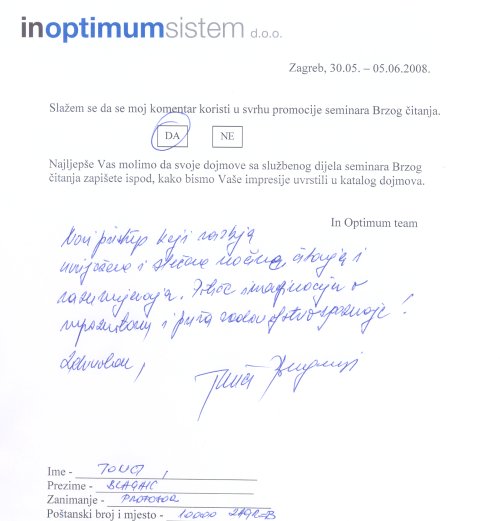 inoptimumsistem d.o.o.
Zagreb, 30.05. – 05.06.2008.
Slažem se da se moj komentar koristi u svrhu promocije seminara Brzog čitanja.
DA NE
Najljepše Vas molimo da svoje dojmove sa službenog dijela seminara Brzog
čitanja zapišete ispod, kako bismo Vaše impresije uvrstili u katalog dojmova.
In Optimum team
Novi pristup koji razbija
i stečene načine čitanja i
razumijevanja. Potiče imaginaciju
i !
Zahvalan,
Ime - TONČI
Prezime - BLAGAIC
Zanimanje - PROFESOR
Poštanski broj i mjesto - 10000 ZAGREB